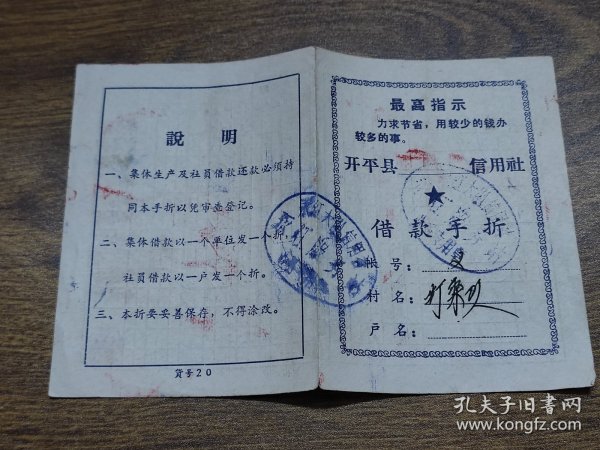 說明
一、集体生产及社员借款还款必须持
同本手折以凭审查登记。
二、集体借款以一个单位发一个折，
社员借款以一户发一个折。
三、本折要妥善保存，不得涂改。
貨号20
最高指示
力求节省，用较少的钱办
较多的事。
开平县 信用社
借款手折
帐号：
村名：
户名：
孔夫子旧书网
www.kongfz.com